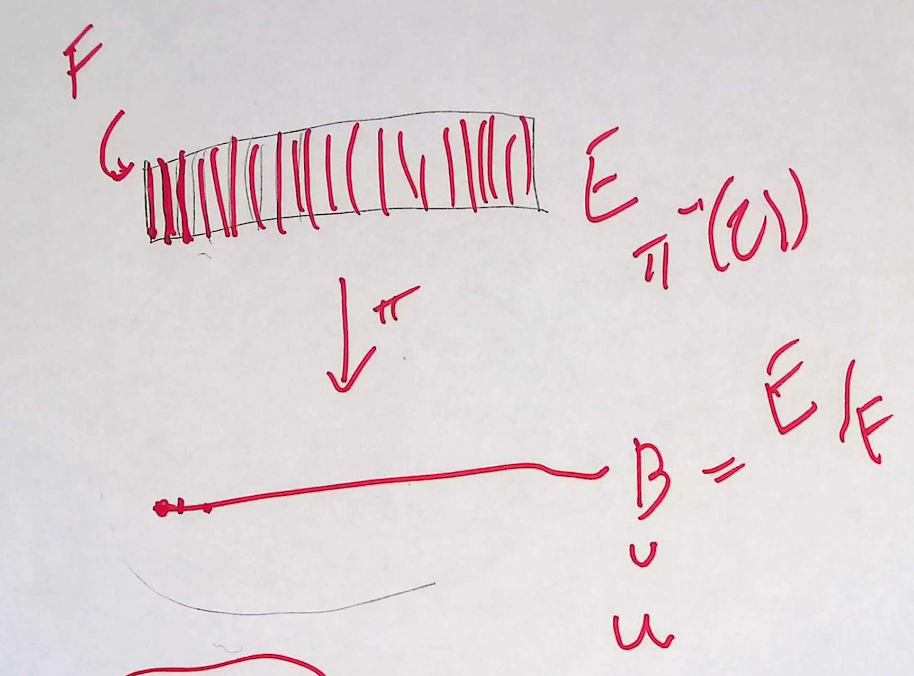 F
E
π⁻¹(U)
π
B = E/F
∪
U